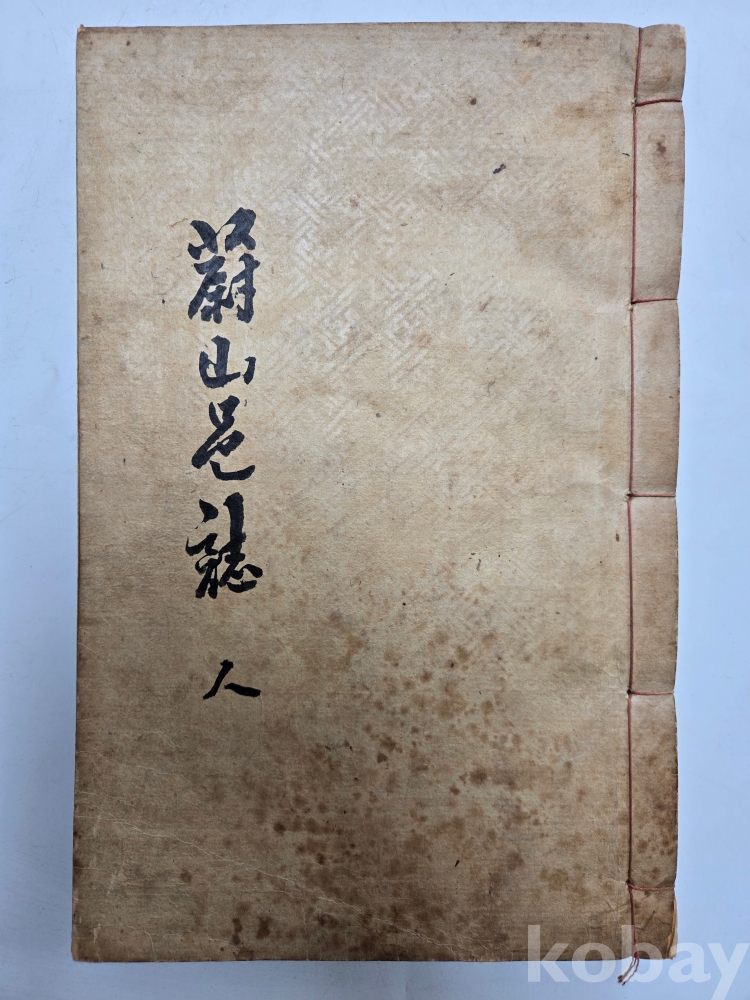 蔚山邑誌 人
kobay